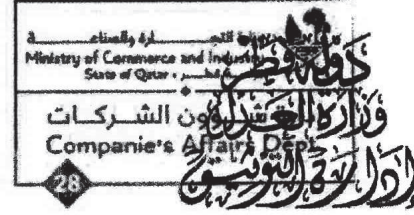 وزارة التجارة والصناعة
Ministry of Commerce and Industry
State of Qatar • دولة قطر
شؤون الشركات
Companie's Affairs Dept.
28
دولة قطر
وزارة العدل
إدارة التوثيق